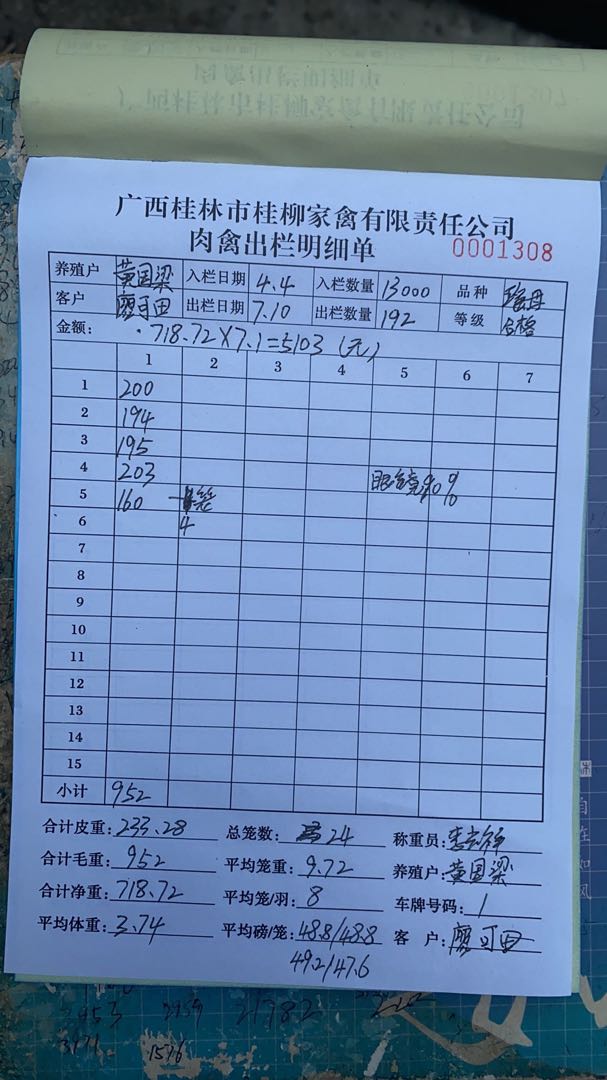 广西桂林市桂柳家禽有限责任公司
肉禽出栏明细单 0001308
养殖户 黄国梁 入栏日期 4.4 入栏数量 13000 品种
客户 廖可田 出栏日期 7.10 出栏数量 192 等级 合格
金额: 718.72×7.1=5103(元)
1 2 3 4 5 6 7
1 200
2 194
3 195
4 203 90%
5 160
6 4
7
8
9
10
11
12
13
14
15
小计 952
合计皮重: 233.28 总笼数: 24 称重员:
合计毛重: 952 平均笼重: 9.72 养殖户: 黄国梁
合计净重: 718.72 平均笼/羽: 8 车牌号码: 1
平均体重: 3.74 平均磅/笼: 48.8/48.8 客户: 廖可田
49.2/47.6
2953 2959 21782
3171 1576
自在如风